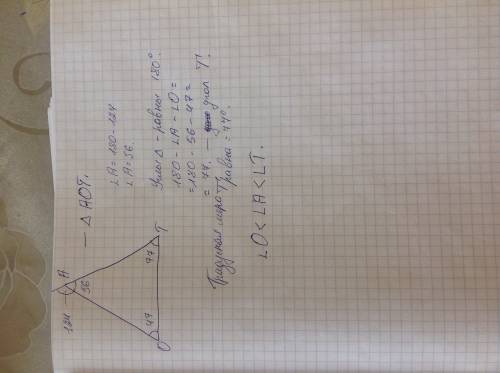 — Δ АОТ.
124
А
56
О
47
Т
77
∠А = 180 - 124
∠А = 56
Углы Δ - равны 180°.
180 - ∠А - ∠О =
= 180 - 56 - 47 =
= 77. — угол Т.
Градусная мера Т
равна = 77°.
∠О < ∠А < ∠Т.